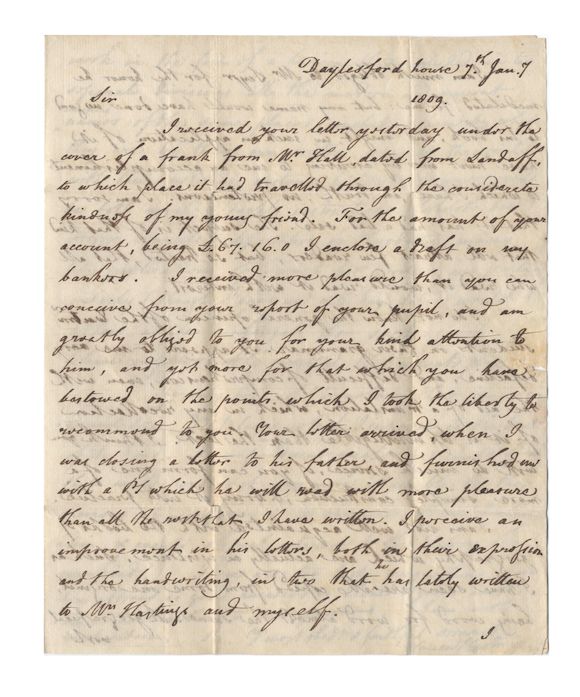 Daylesford house 7.th Jan.y
Sir 1809.
I received your letter yesterday under the
cover of a frank from Mr Hall, dated from Landaff,
to which place it had travelled through the considerate
kindness of my young friend. For the amount of your
account, being £.67.16.0 I enclose a draft on my
bankers. I received more pleasure than you can
conceive from your report of your pupil, and am
greatly obliged to you for your kind attention to
him, and yet more for that which you have
bestowed on the points which I took the liberty to
recommend to you Your letter arrived, when I
was closing a letter to his father and furnished me
with a PS which he will read with more pleasure
than all the rest that I have written. I perceive an
improvement in his letters, both in their expression
and the handwriting, in two that he has lately written
to Mrs Hastings and myself.
I